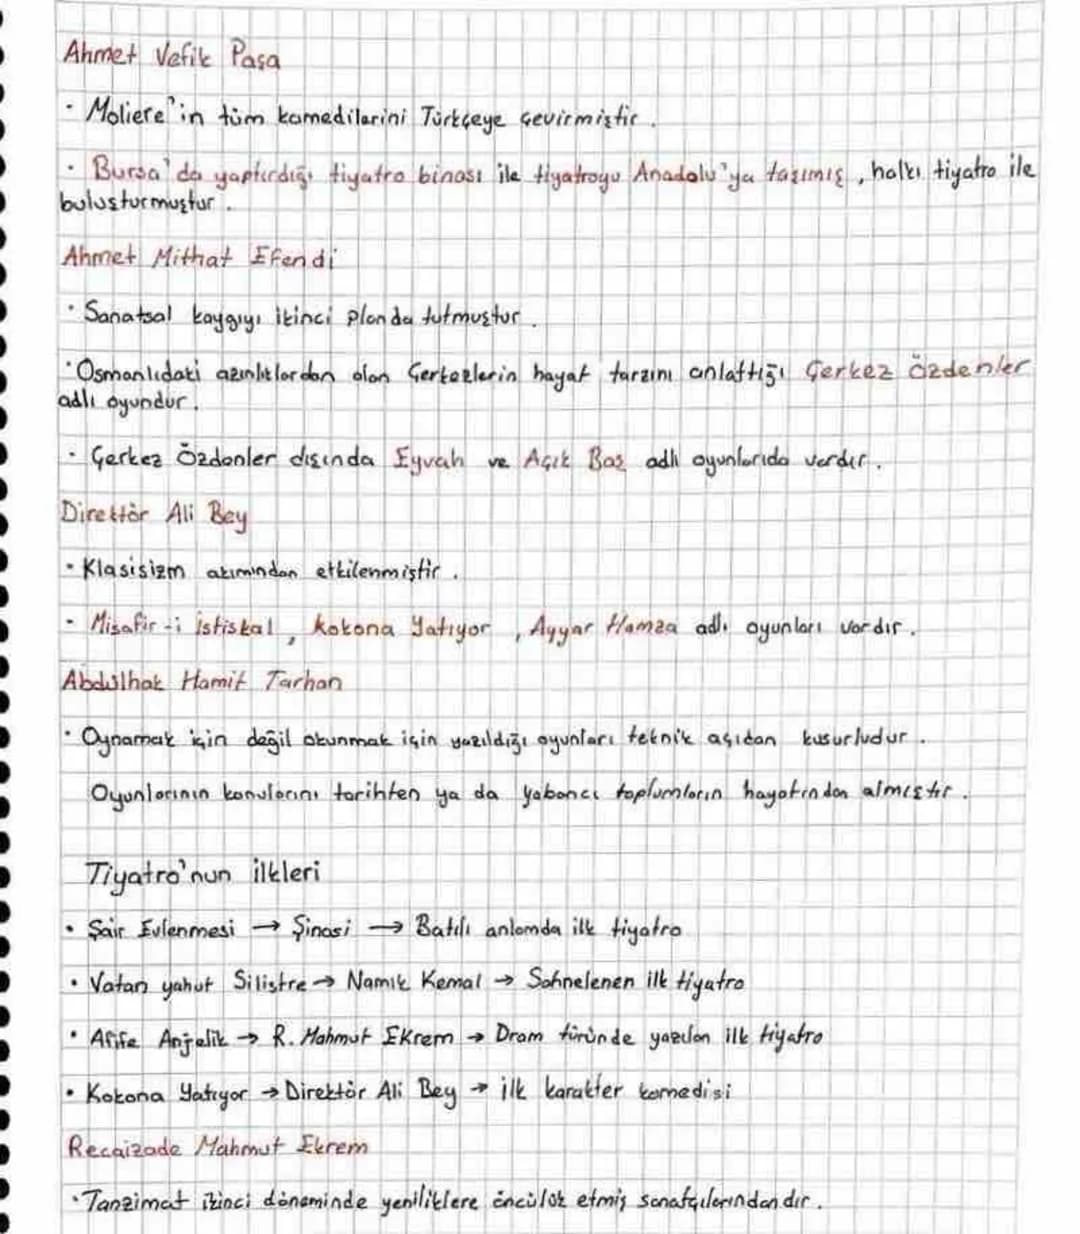 Ahmet Vefik Paşa
· Moliere'in tüm komedilerini Türkçeye çevirmiştir.
· Bursa'da yaptırdığı tiyatro binası ile tiyatroyu Anadolu'ya taşımış, halkı tiyatro ile
buluşturmuştur.
Ahmet Mithat Efendi
· Sanatsal kaygıyı ikinci planda tutmuştur.
· Osmanlıdaki azınlıklardan olan Çerkezlerin hayat tarzını anlattığı Çerkez Özdenler
adlı oyundur.
· Çerkez Özdenler dışında Eyvah ve Açık Baş adlı oyunlarıda vardır.
Direktör Ali Bey
· Klasisizm akımından etkilenmiştir.
· Misafir-i istiskal, Kokona Yatıyor, Ayyar Hamza adlı oyunları vardır.
Abdülhak Hamit Tarhan
· Oynamak için değil okunmak için yazıldığı oyunları teknik açıdan kusurludur.
Oyunlarının konularını tarihten ya da yabancı toplumların hayatından almıştır.
Tiyatro'nun ilkleri
• Şair Evlenmesi → Şinasi → Batılı anlamda ilk tiyatro
• Vatan yahut Silistre → Namık Kemal → Sahnelenen ilk tiyatro
• Afife Anjelik → R. Mahmut Ekrem → Dram türünde yazılan ilk tiyatro
• Kokona Yatıyor → Direktör Ali Bey → ilk karakter komedisi
Recaizade Mahmut Ekrem
· Tanzimat ikinci döneminde yeniliklere öncülük etmiş sanatçılarındandır.